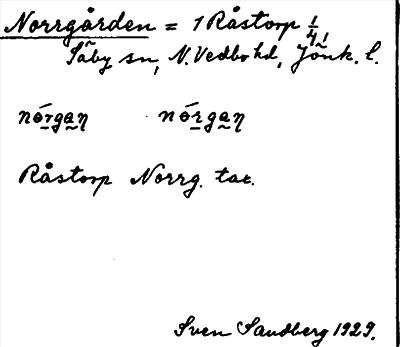 Norrgården = 1 Råstorp 1/4
Säby sn, N. Vedbo hd, Jönk. l.
nórgaṇ nórgaṇ
Råstorp Norrg. tax.
Sven Sandberg 1929.